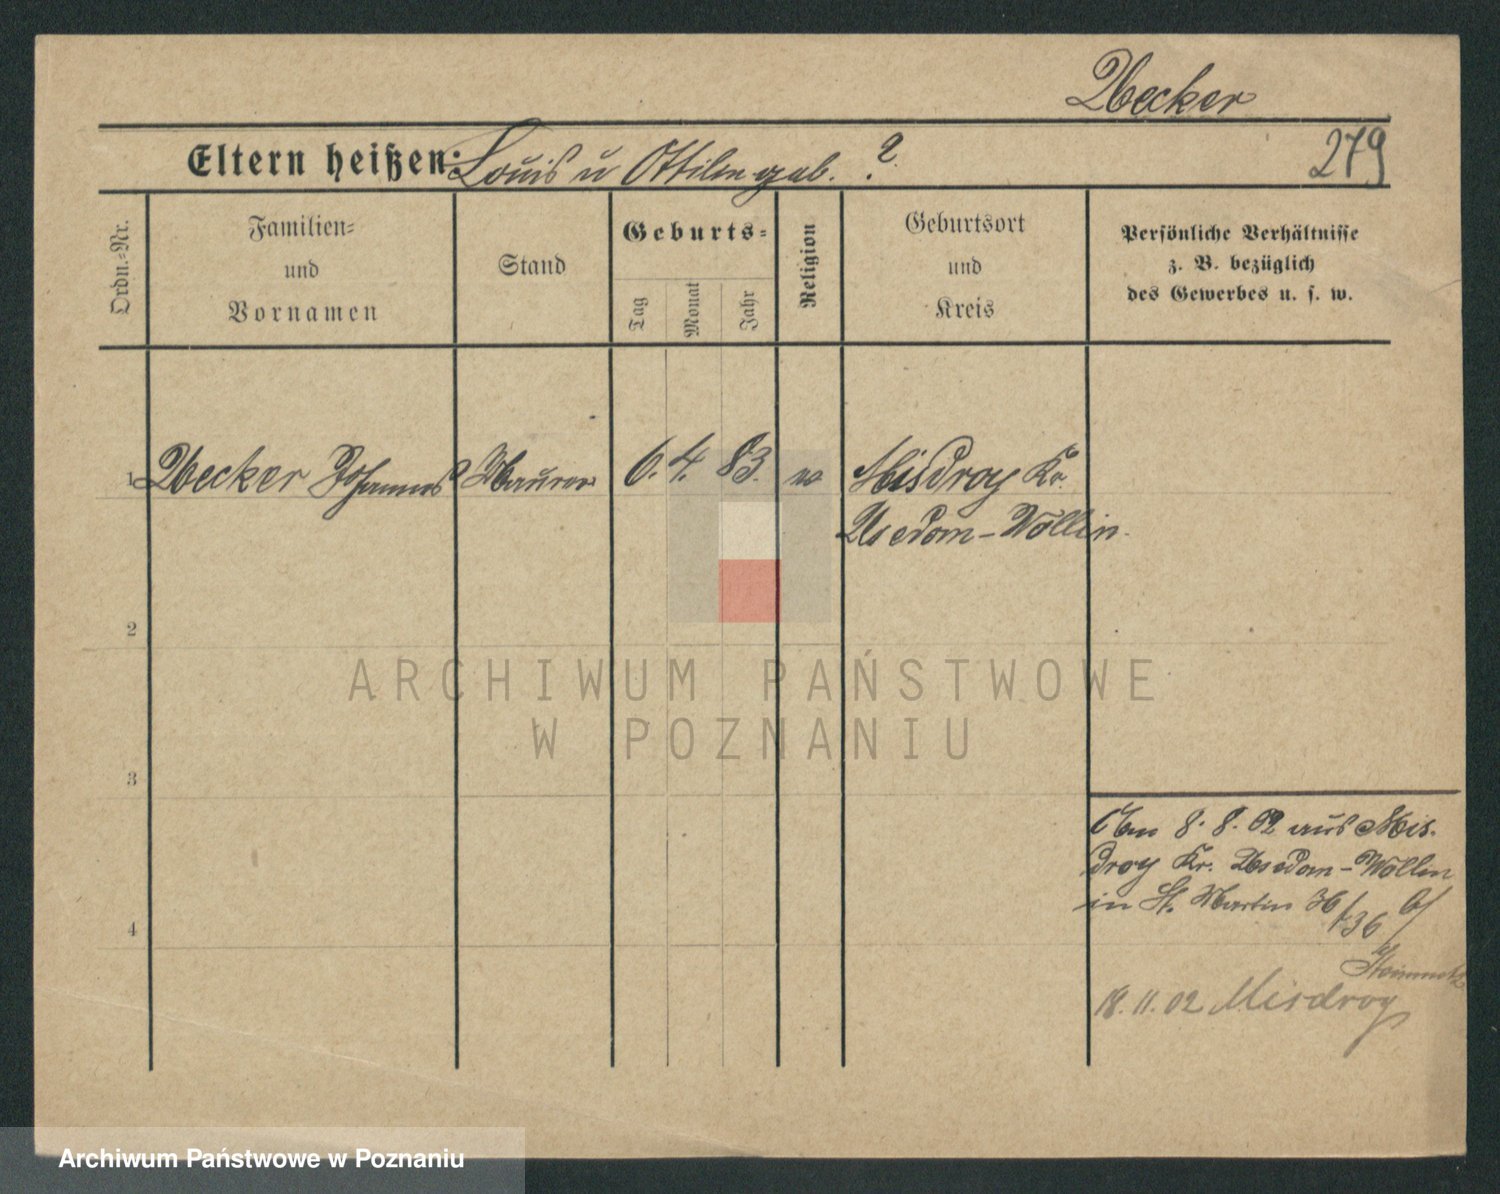 Uecker
Eltern heißen: Louis u Ottilie geb. ?
279
Ordn.-Nr.
Familien-
und
Vornamen
Stand
Geburts-
Tag
Monat
Jahr
Religion
Geburtsort
und
Kreis
Persönliche Verhältnisse
z. B. bezüglich
des Gewerbes u. s. w.
1 Uecker Johannes Maurer 6. 4. 83. Misdroy Kr.
Usedom-Wollin.
2
3
4
8. 8. 02 aus Mis-
droy Kr. Usedom-Wollin
in St. Martin 36 b/
Steinmetz
18. 11. 02 Misdroy
ARCHIWUM PAŃSTWOWE
W POZNANIU
Archiwum Państwowe w Poznaniu